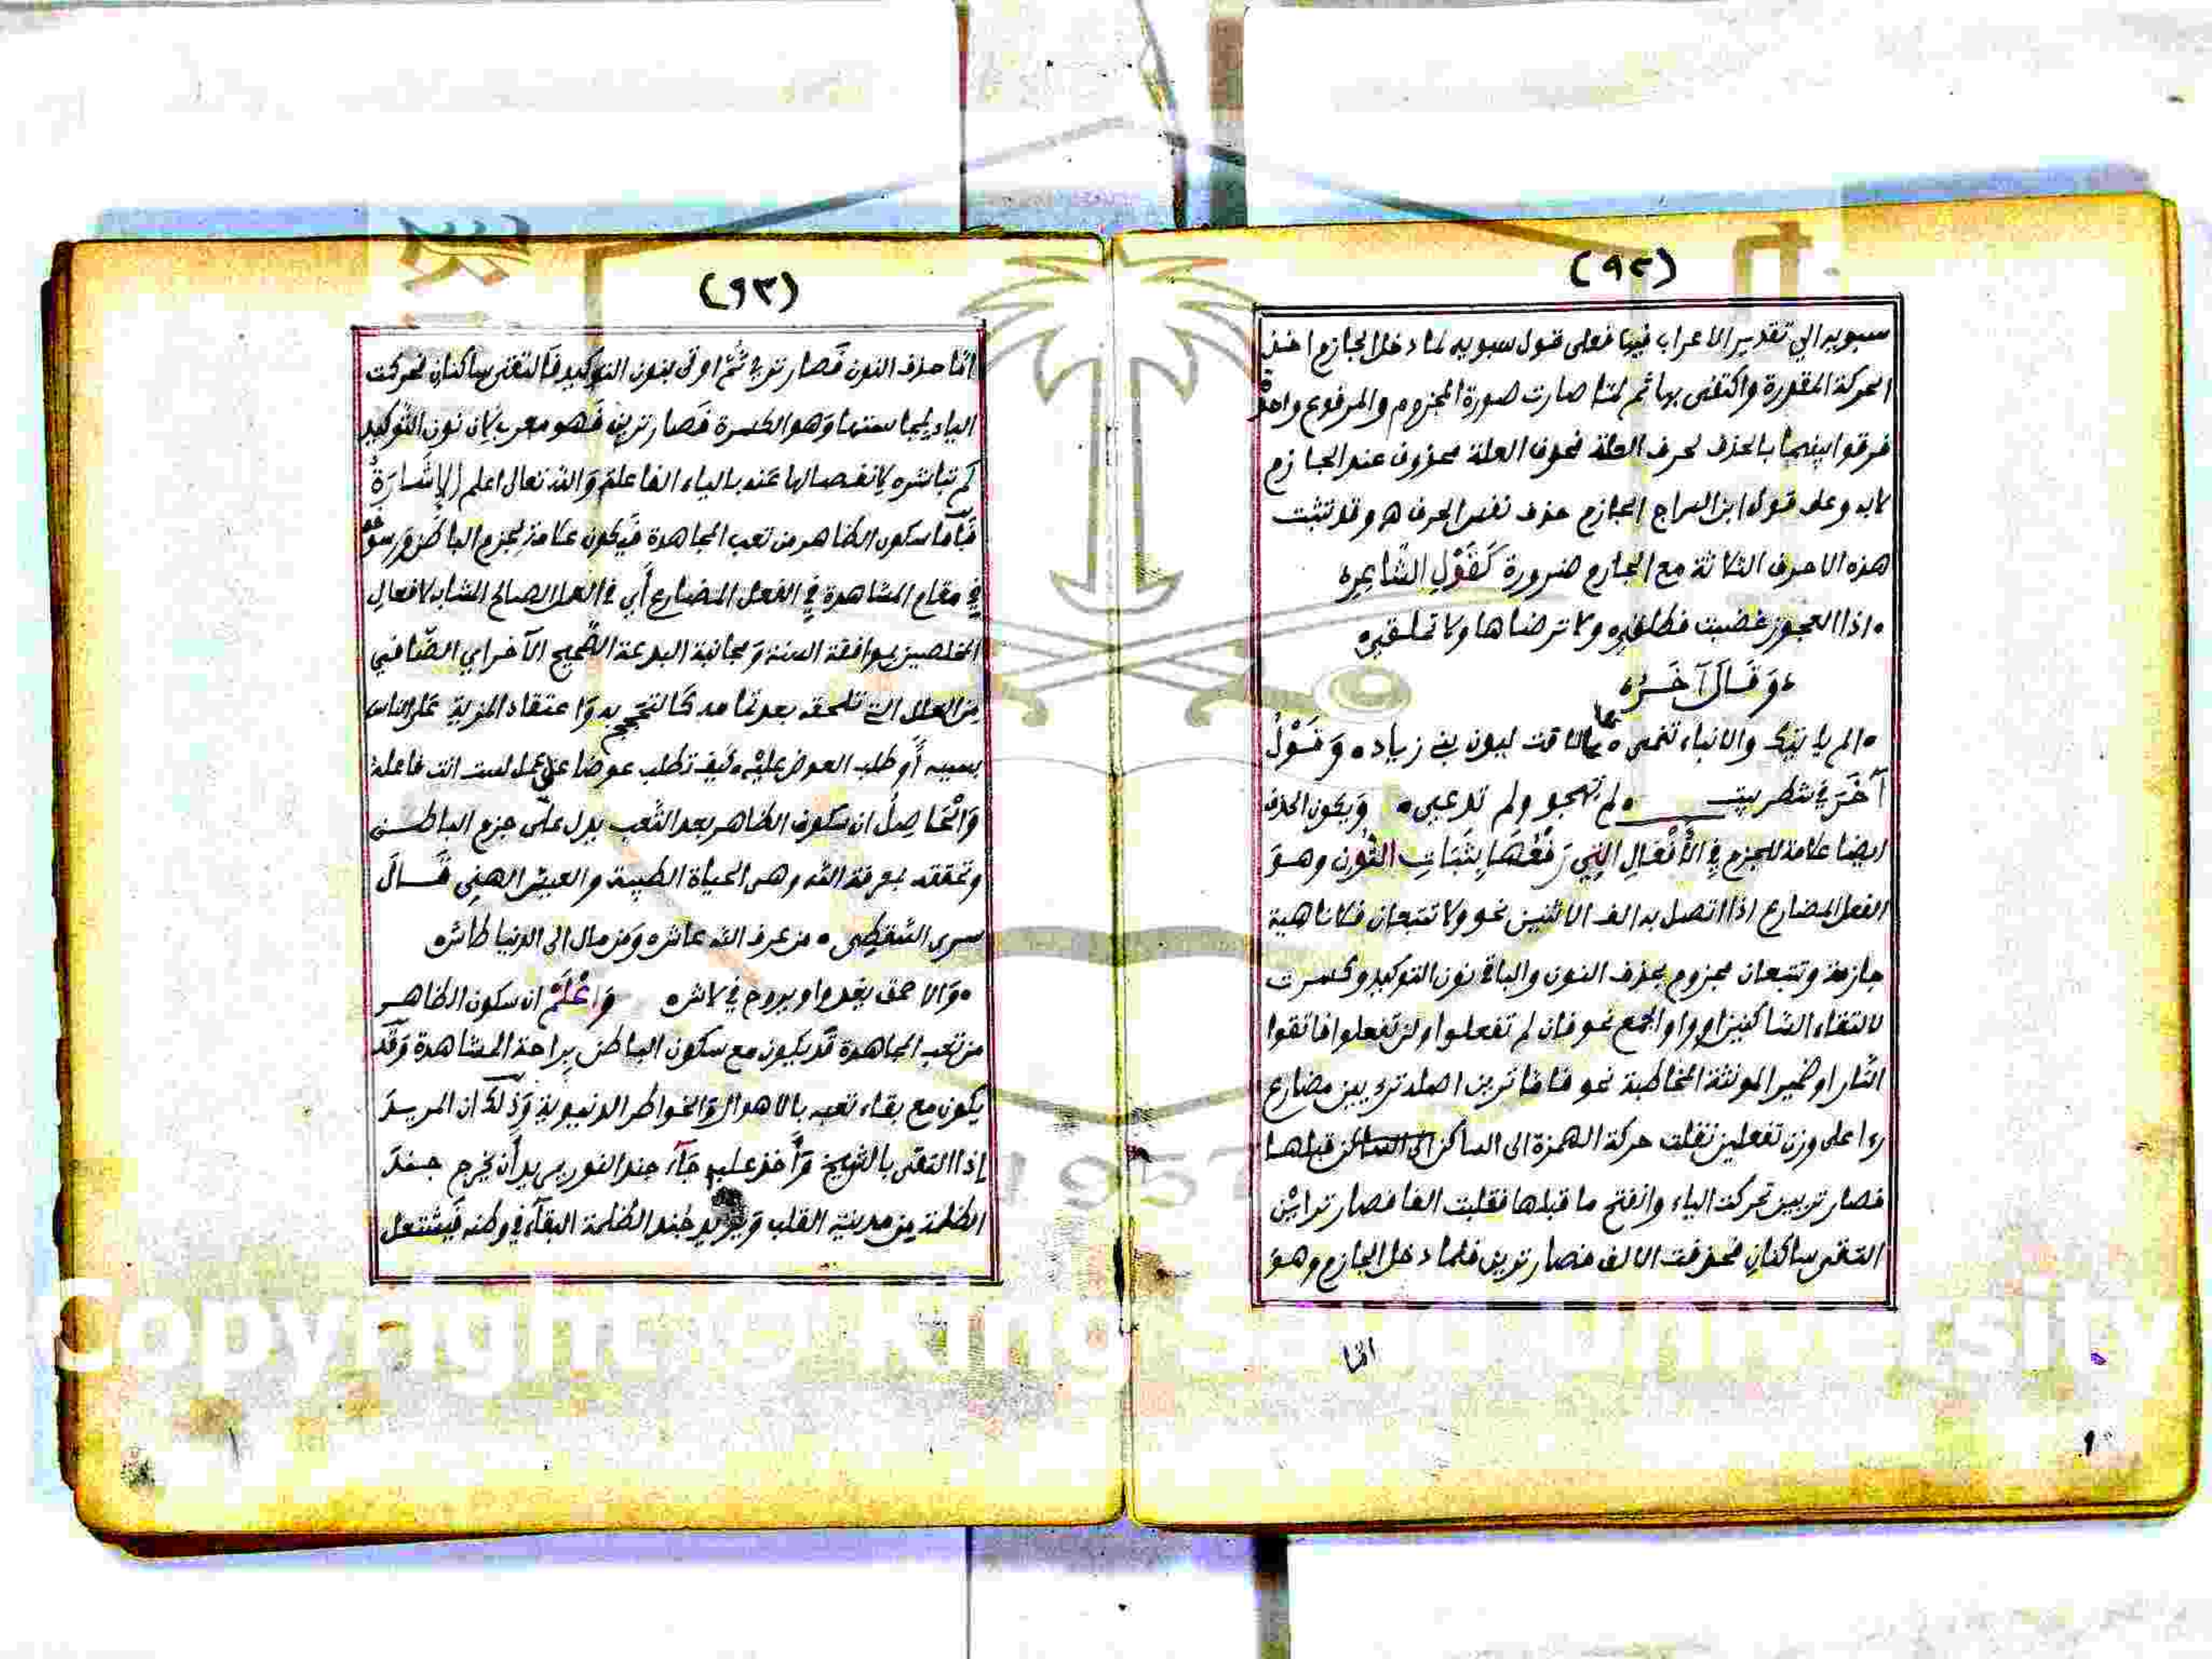 (٩٢)
سيبويه الي تقدير الاعراب فيها فعلى قول سيبويه لما دخل الجازم اخذ
الحركة المقدرة واكتفى بها ثم لما صارت صورة المجزوم والمرفوع واحدة
فرقوا بينهما بالحذف لحرف العلة فحرف العلة محذوف عند الجازم
لا به وعلى قول ابن السراج الجازم حذف نفس الحرف ه وقد تثبت
هذه الاحرف الثلاثة مع الجازم ضرورة كَقَوْلِ الشَّاعِرِه
اذا العجوز غضبت فطلقه ولا ترضاها ولا تملقه
وَقَالَ آخَرُ
الم ياتيك والانباء تنمى بما لاقت لبون بني زياد وَقَوْلُ
آخَرَ في شطر بيت لم تهجو ولم تدعي وَيكون الحذف
ايضا علامة للجزم في الأَفْعَالِ التِي رَفْعُهَا بِثَبَاتِ النُّونِ وهوَ
الفعل المضارع اذا اتصل به الف الاثنين نحو ولا تتبعان فلا ناهية
جازمة وتتبعان مجزوم بحذف النون والباقي نون التوكيد وكسرت
لالتقاء الساكنين او واو الجمع نحو فان لم تفعلوا ولن تفعلوا فاتقوا
النار او ضمير المونثة المخاطبة نحو فاما ترين اصله ترءيين مضارع
رءا على وزن تفعلين نقلت حركة الهمزة الى الساكن الى الساكن قبلها
فصار تريين تحركت الياء وانفتح ما قبلها فقلبت الفا فصار تراين
التقى ساكنان فحذفت الالف فصار ترين فلما دخل الجازم وهوَ
اما
(٩٣)
امّا حذف النون فَصار تري ثُمَّ اوتي بنون التوكيد فَالتقى ساكنان فحركت
الياء بمجانستها وَهو الكسرة فَصار ترين فَهو معرب لان نون التوكيد
لم تباشره لانفصالها عنه بالياء الفاعلة وَالله تعالى اعلم الاِشَارَةُ
فَامَّا سكون الظاهر من تعب المجاهدة فَيكون علامة لجزم الباطن ورسوخه
فِي مقام المشاهدة فِي الفعل المضارع أَي في العمل الصالح المشابه لافعال
المخلصين بموافقة السنة وَمجانبة البدعة الصَّحيح الآخر اي الصَّافي
من العلل التي تلحقه بعد تمامه كَالتبجح به وَاعتقاد المزية على الناس
بسببه أَو طلب العوض عليه كيف تطلب عوضا على عمل لست انت فاعله
وَالْحَاصِلُ ان سكون الظاهر بعد التَّعب يدل على جزم الباطن
وتحققه بمعرفة الله وهي الحياة الطيبة والعيش الهني قَالَ
سري السقطي من عرف الله عاش وَمن مال الى الدنيا طاش
وَالاحمق يغدوا ويروح في لاش وَاعْلَمْ ان سكون الظاهر
من تعب المجاهدة قَد يكون مع سكون الباطن براحة المشاهدة وَقَد
يكون مع بقاء تعبه بالاهوال وَالخواطر الدنيوية وَذَلك ان المريدَ
إذا التقى بالشيخ وَأَخذ عليه جآء جند النور يريد أَن يخرج جندَ
الظلمة من مدينة القلب وَيريد جُند الظلمة البقآء في وطنه فَيشتعل
Copyright © King Saud University
1957